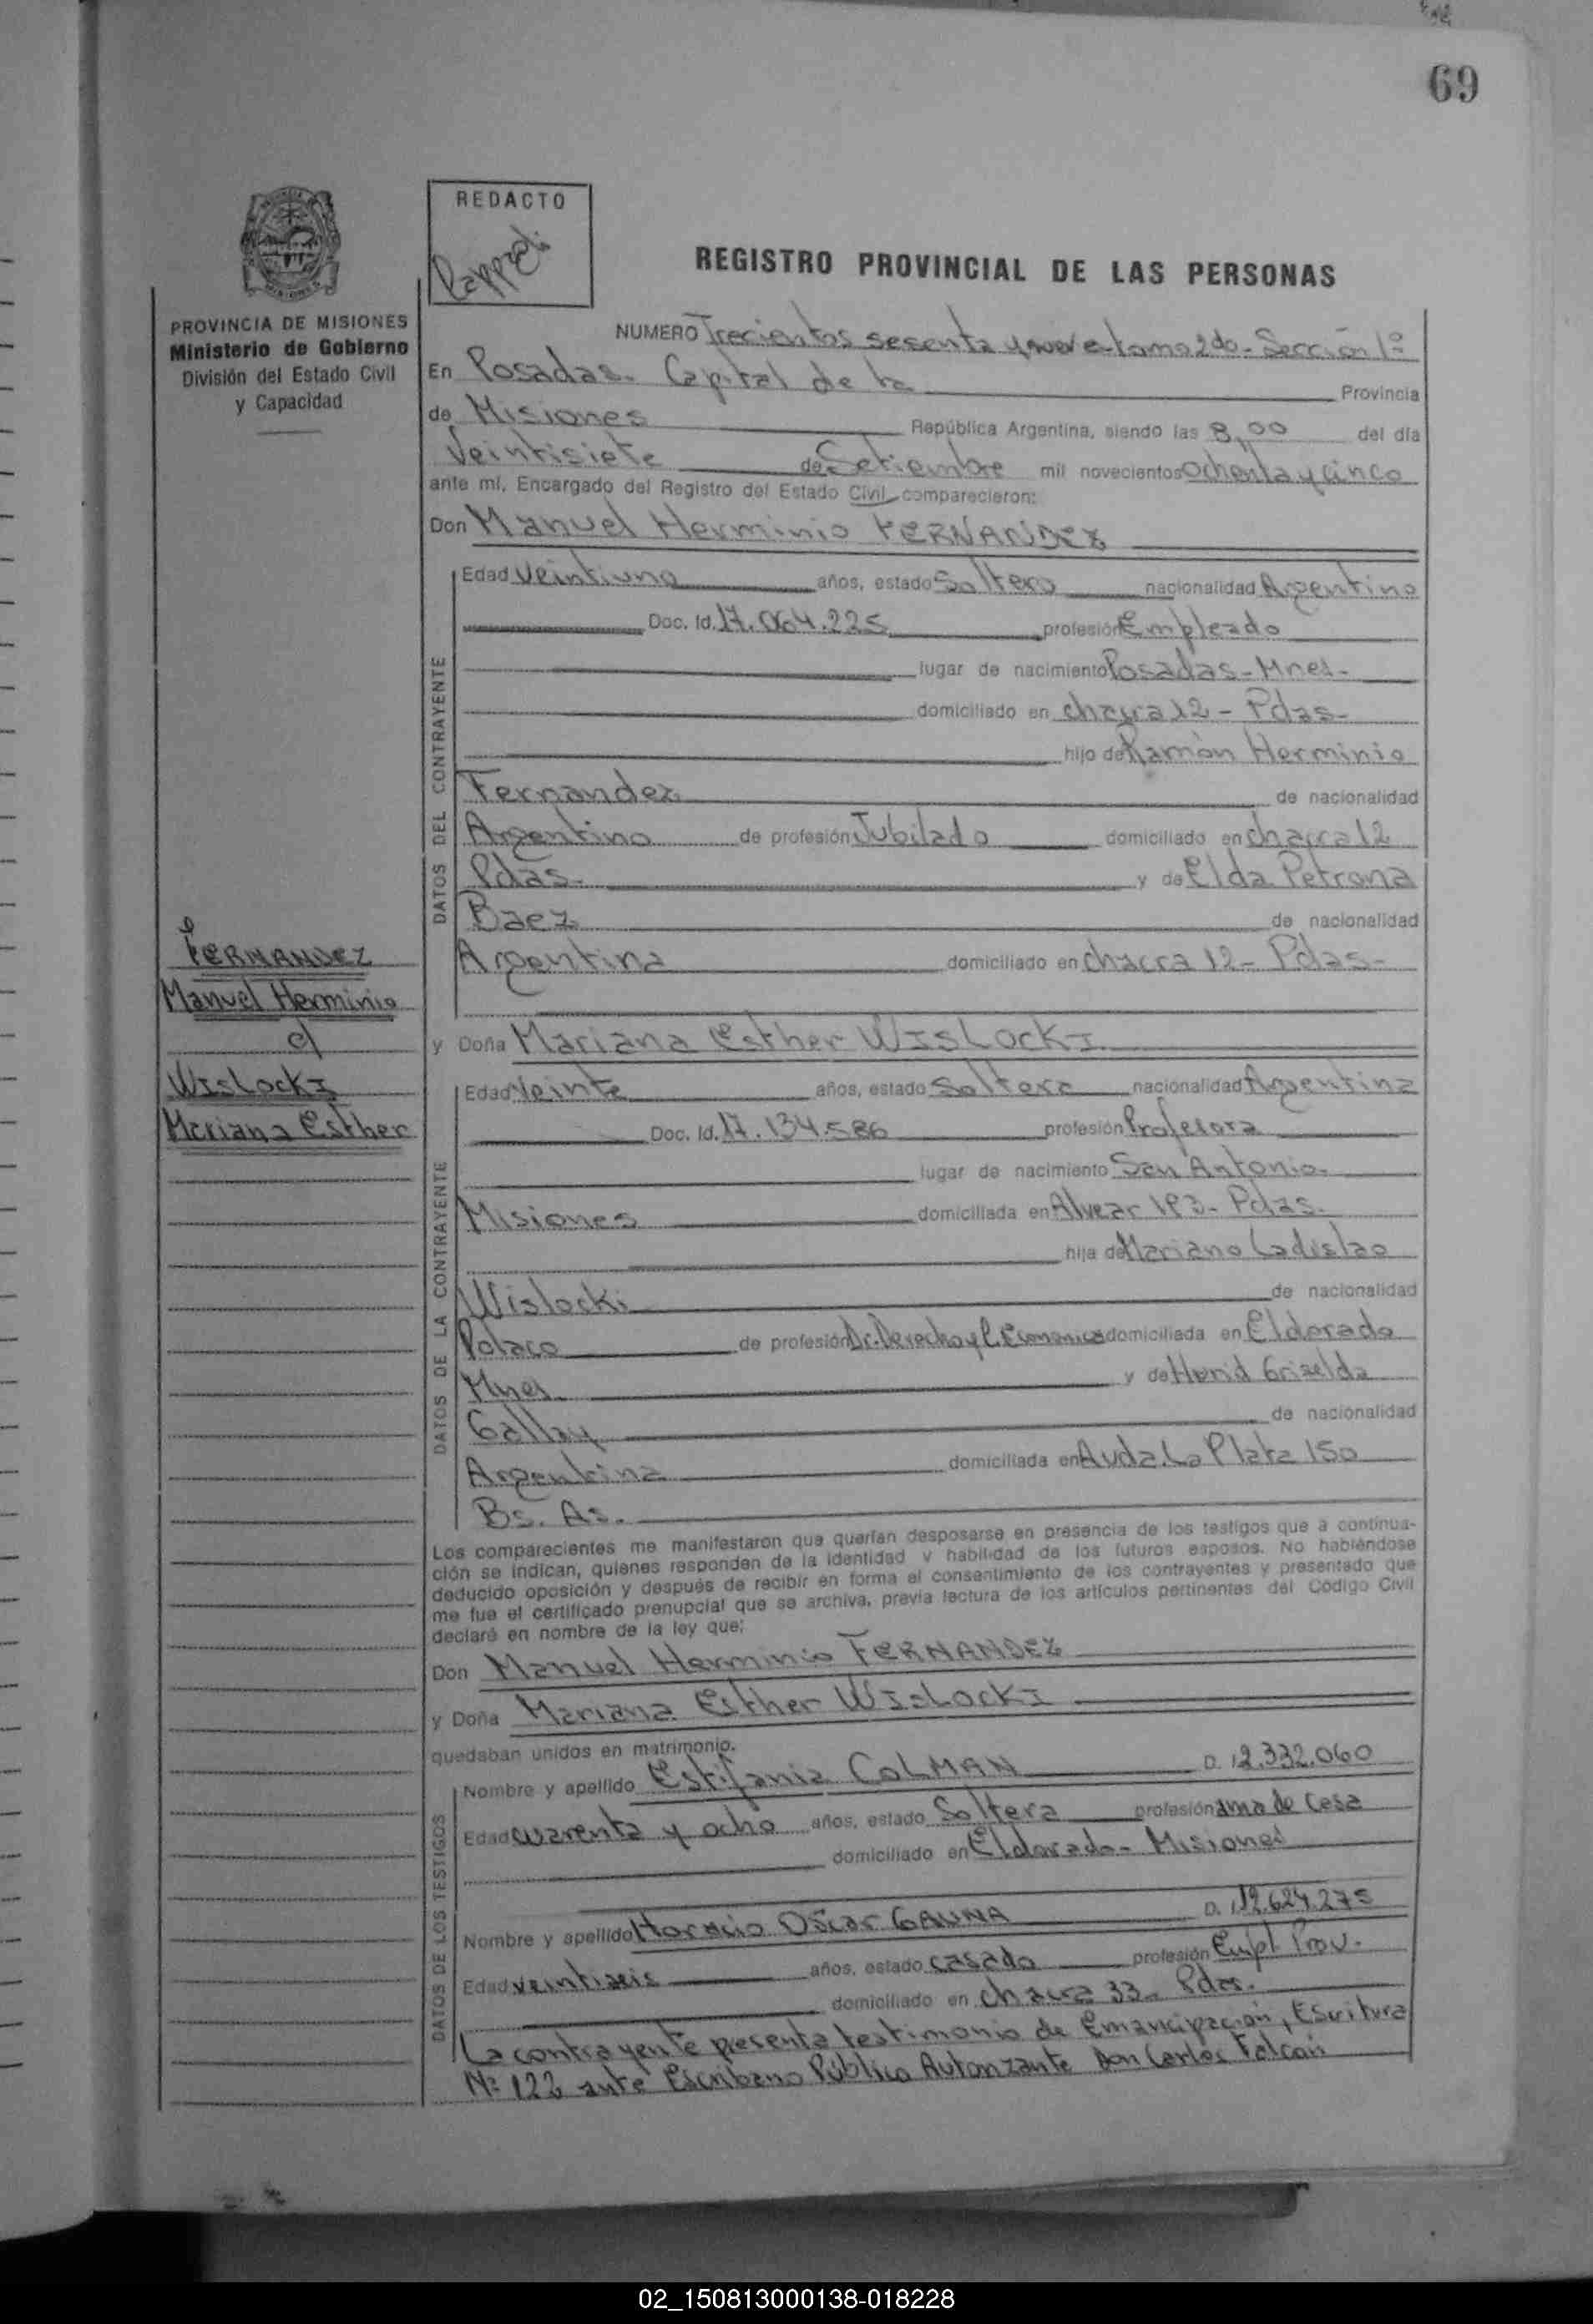 69
REDACTO
REGISTRO PROVINCIAL DE LAS PERSONAS
PROVINCIA DE MISIONES
Ministerio de Gobierno
División del Estado Civil
y Capacidad
NUMERO Trecientos sesenta y nueve tomo 2do - Sección 1º
En Posadas. Capital de la Provincia
de Misiones República Argentina, siendo las 8,00 del día
Veintisiete de Setiembre mil novecientos Ochenta y cinco
ante mí, Encargado del Registro del Estado Civil comparecieron:
Don Manuel Herminio FERNANDEZ
DATOS DEL CONTRAYENTE
Edad Veintiuno años, estado Soltero nacionalidad Argentino
Doc. Id. 17.064.225 profesión Empleado
lugar de nacimiento Posadas - Mnes -
domiciliado en chacra 12 - Pdas -
hijo de Ramón Herminio
Fernandez de nacionalidad
Argentino de profesión Jubilado domiciliado en chacra 12
Pdas. y de Elda Petrona
Baez de nacionalidad
Argentina domiciliado en chacra 12 - Pdas -
FERNANDEZ
Manuel Herminio
c/
WISLOCKI
Mariana Esther
y Doña Mariana Esther WISLOCKI
DATOS DE LA CONTRAYENTE
Edad Veinte años, estado Soltera nacionalidad Argentina
Doc. Id. 17.134.586 profesión Profesora
lugar de nacimiento San Antonio.
Misiones domiciliada en Alvear 193 - Pdas.
hija de Mariano Ladislao
Wislocki de nacionalidad
Polaco de profesión Dr. Derecho y C. Economica domiciliada en Eldorado
Mnes y de Griselda
Gallay de nacionalidad
Argentina domiciliada en Avda. La Plata 150
Bs. As.
Los comparecientes me manifestaron que querían desposarse en presencia de los testigos que a continua-
ción se indican, quienes responden de la identidad y habilidad de los futuros esposos. No habiéndose
deducido oposición y después de recibir en forma el consentimiento de los contrayentes y presentado que
me fue el certificado prenupcial que se archiva, previa lectura de los artículos pertinentes del Código Civil
declaré en nombre de la ley que:
Don Manuel Herminio FERNANDEZ
y Doña Mariana Esther WISLOCKI
quedaban unidos en matrimonio.
DATOS DE LOS TESTIGOS
Nombre y apellido Estifania COLMAN D. 12.332.060
Edad cuarenta y ocho años, estado Soltera profesión ama de Casa
domiciliado en Eldorado - Misiones
Nombre y apellido Horacio Oscar GAUNA D. 12.624.275
Edad veintiseis años, estado casado profesión Empl Prov.
domiciliado en chacra 33 - Pdas.
La contrayente presenta testimonio de Emancipación, Escritura
Nº 122 ante Escribano Público Autorizante Don Carlos Falcón
02_150813000138-018228